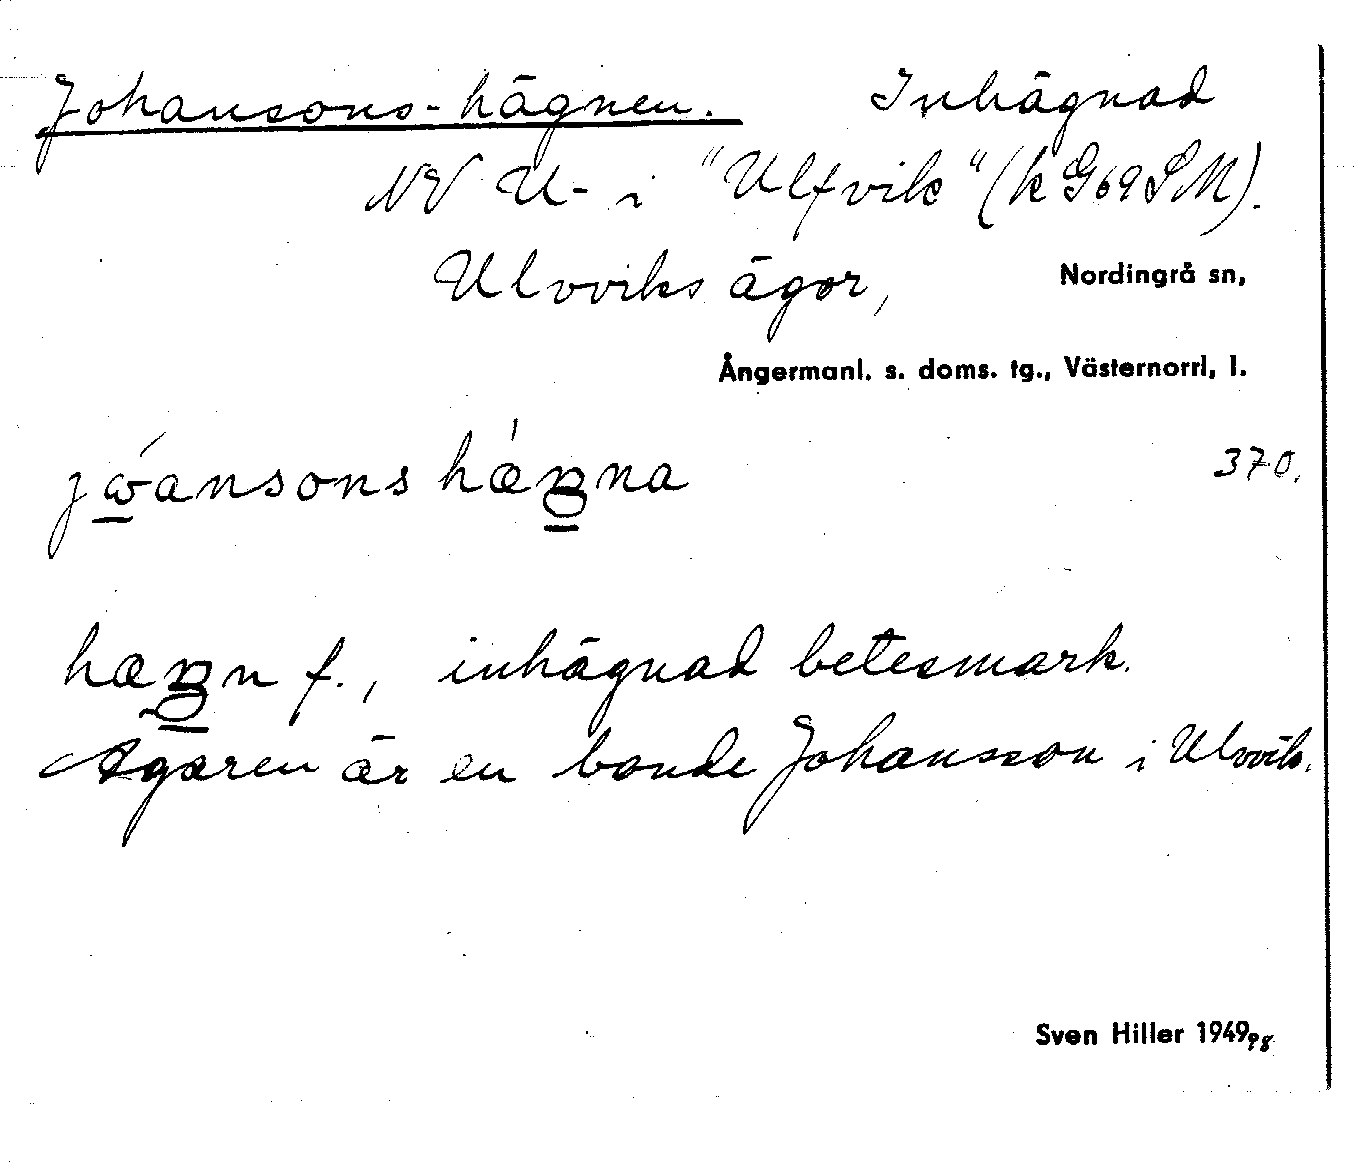 Johansons-hägnen. Inhägnad
NV U- i "Ulfvik" (k G69SM).
Ulvviks ägor, Nordingrå sn,
Ångermanl. s. doms. tg., Västernorrl, l.
370.
f., inhägnad betesmark.
Ägaren är en bonde Johansson i Ulvvik.
Sven Hiller 1949